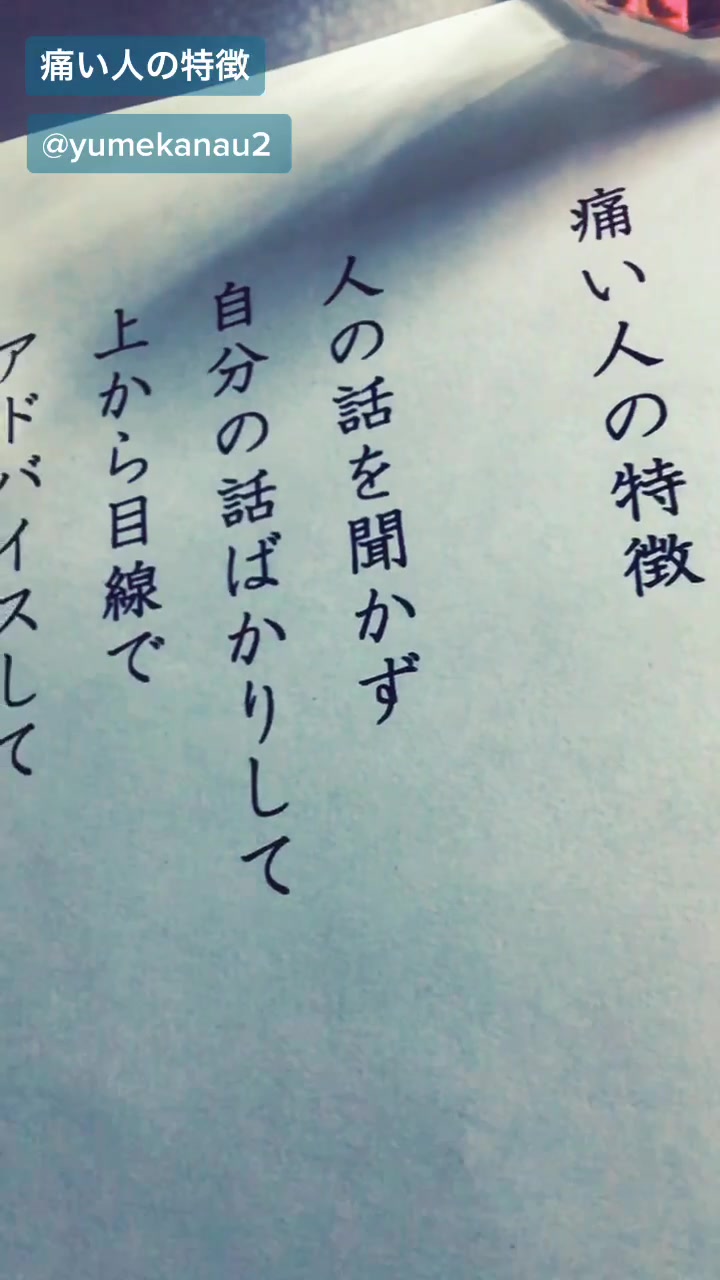 痛い人の特徴
@yumekanau2
痛い人の特徴
人の話を聞かず
自分の話ばかりして
上から目線で
アドバイスして